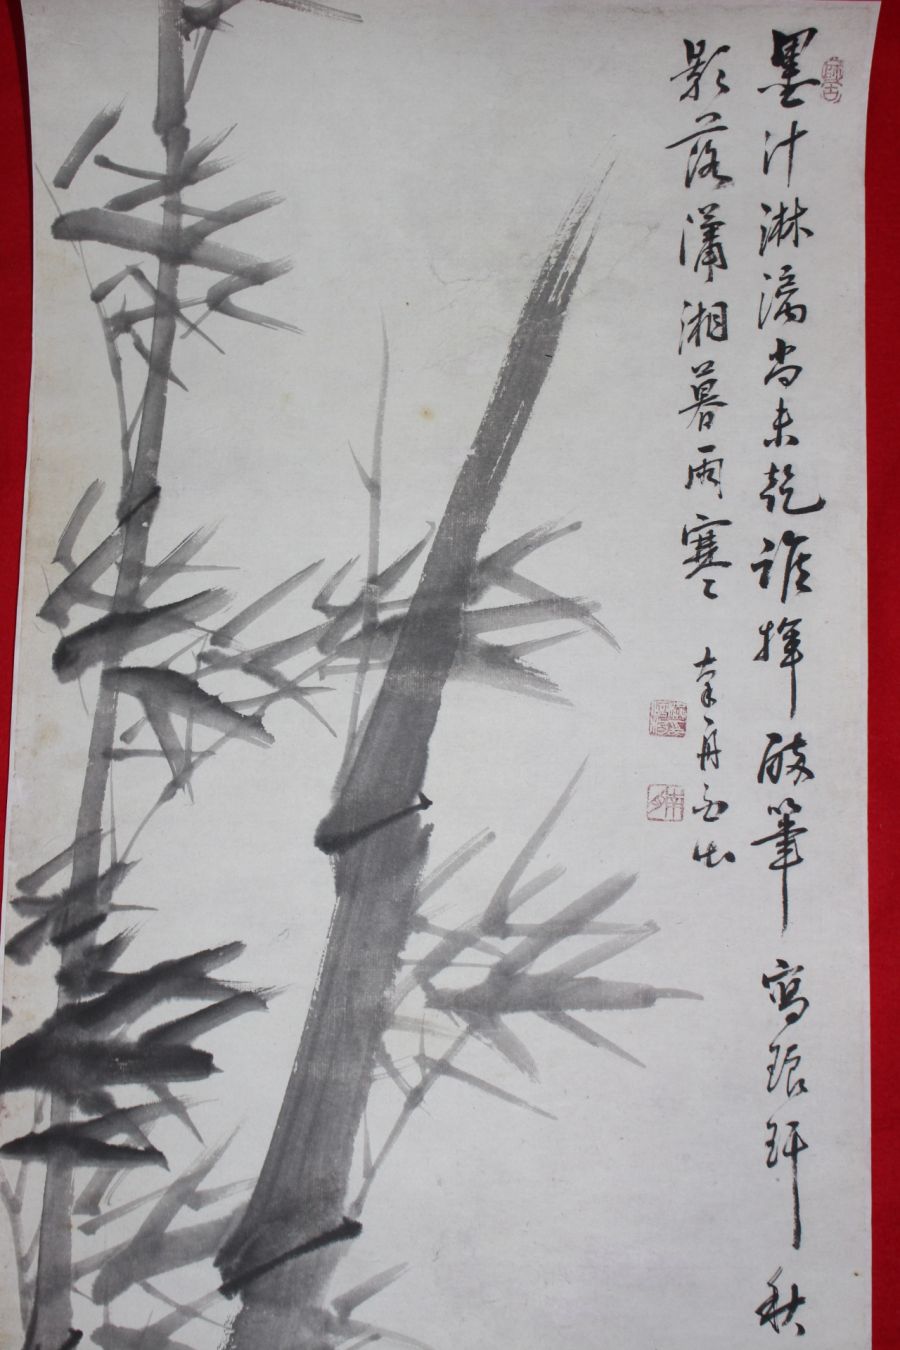 墨汁淋漓尚未乾誰揮醉筆寫琅玕秋
影落瀟湘暮雨寒